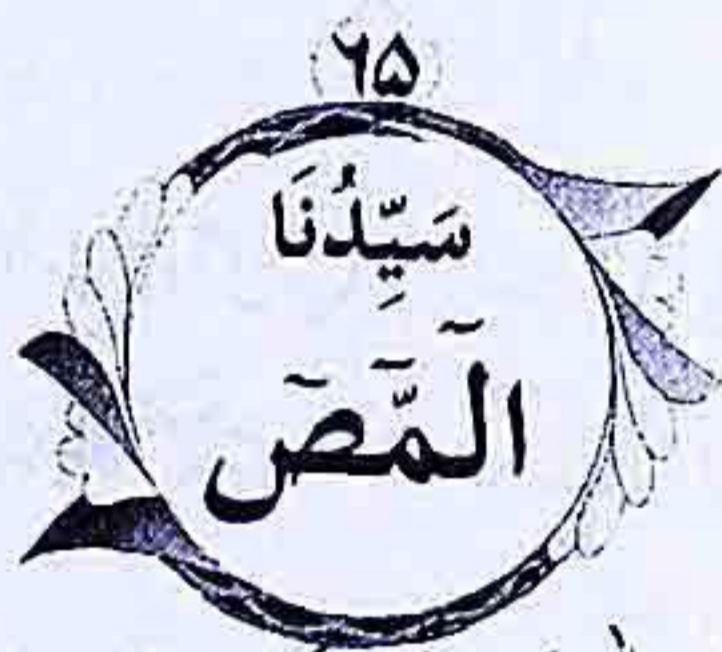 ۶۵
سَيِّدُنَا
الٓمّٓصٓ